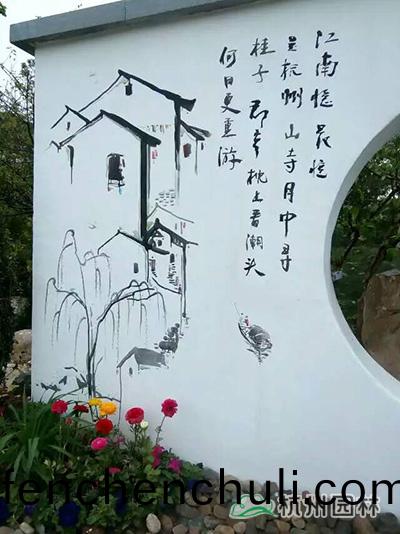 江南忆最忆
是杭州山寺月中寻
桂子郡亭枕上看潮头
何日更重游
fenchenchuli.com
杭州园林